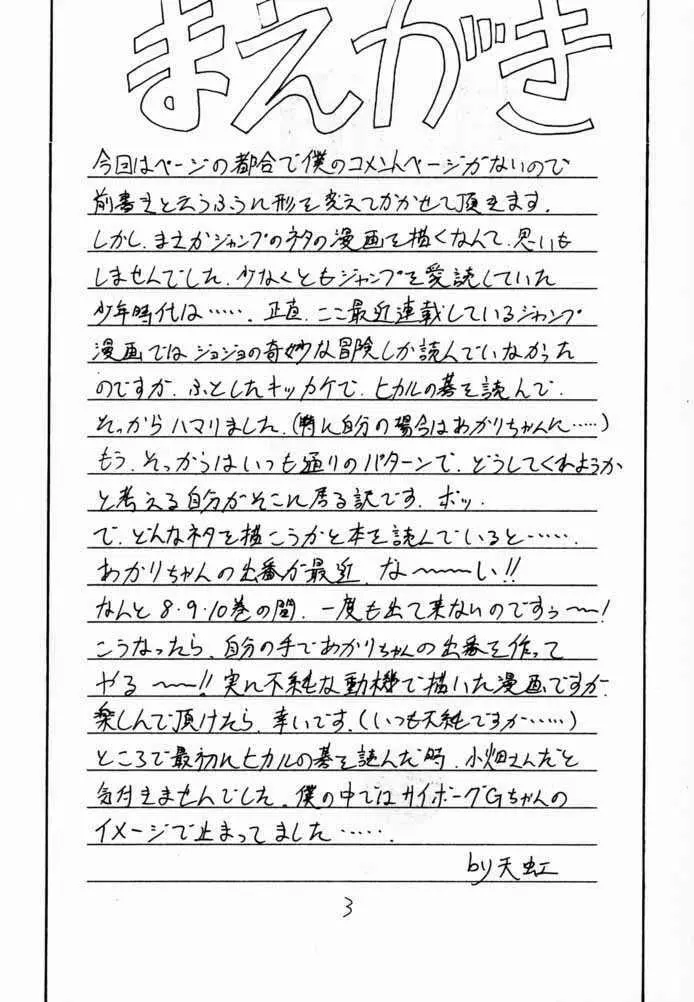 まえがき
今回はページの都合で僕のコメントページがないので
前書きと云うふうに形を変えてかかせて頂きます．
しかし、まさかジャンプのネタの漫画を描くなんて、思いも
しませんでした．少なくともジャンプを愛読していた
少年時代は……．正直、ここ最近連載しているジャンプ
漫画ではジョジョの奇妙な冒険しか読んでいなかった
のですが、ふとしたキッカケで、ヒカルの碁を読んで．
そっからハマリました．（特に自分の場合はあかりちゃんに……）
もう、そっからはいつも通りのパターンで、どうしてくれようか
と考える自分がそこに居る訳です．ポッ．
で、どんなネタを描こうかと本を読んでいると……．
あかりちゃんの出番が最近、な〜〜〜い!!
なんと8・9・10巻の間、一度も出て来ないのですぅ〜〜!
こうなったら、自分の手であかりちゃんの出番を作って
やる〜〜!! 実に不純な動機で描いた漫画ですが、
楽しんで頂けたら、幸いです．（いつも不純ですが……）
ところで最初にヒカルの碁を読んだ時、小畑さんだと
気付きませんでした．僕の中ではサイボーグGちゃんの
イメージで止まってました……．
by天虹
3